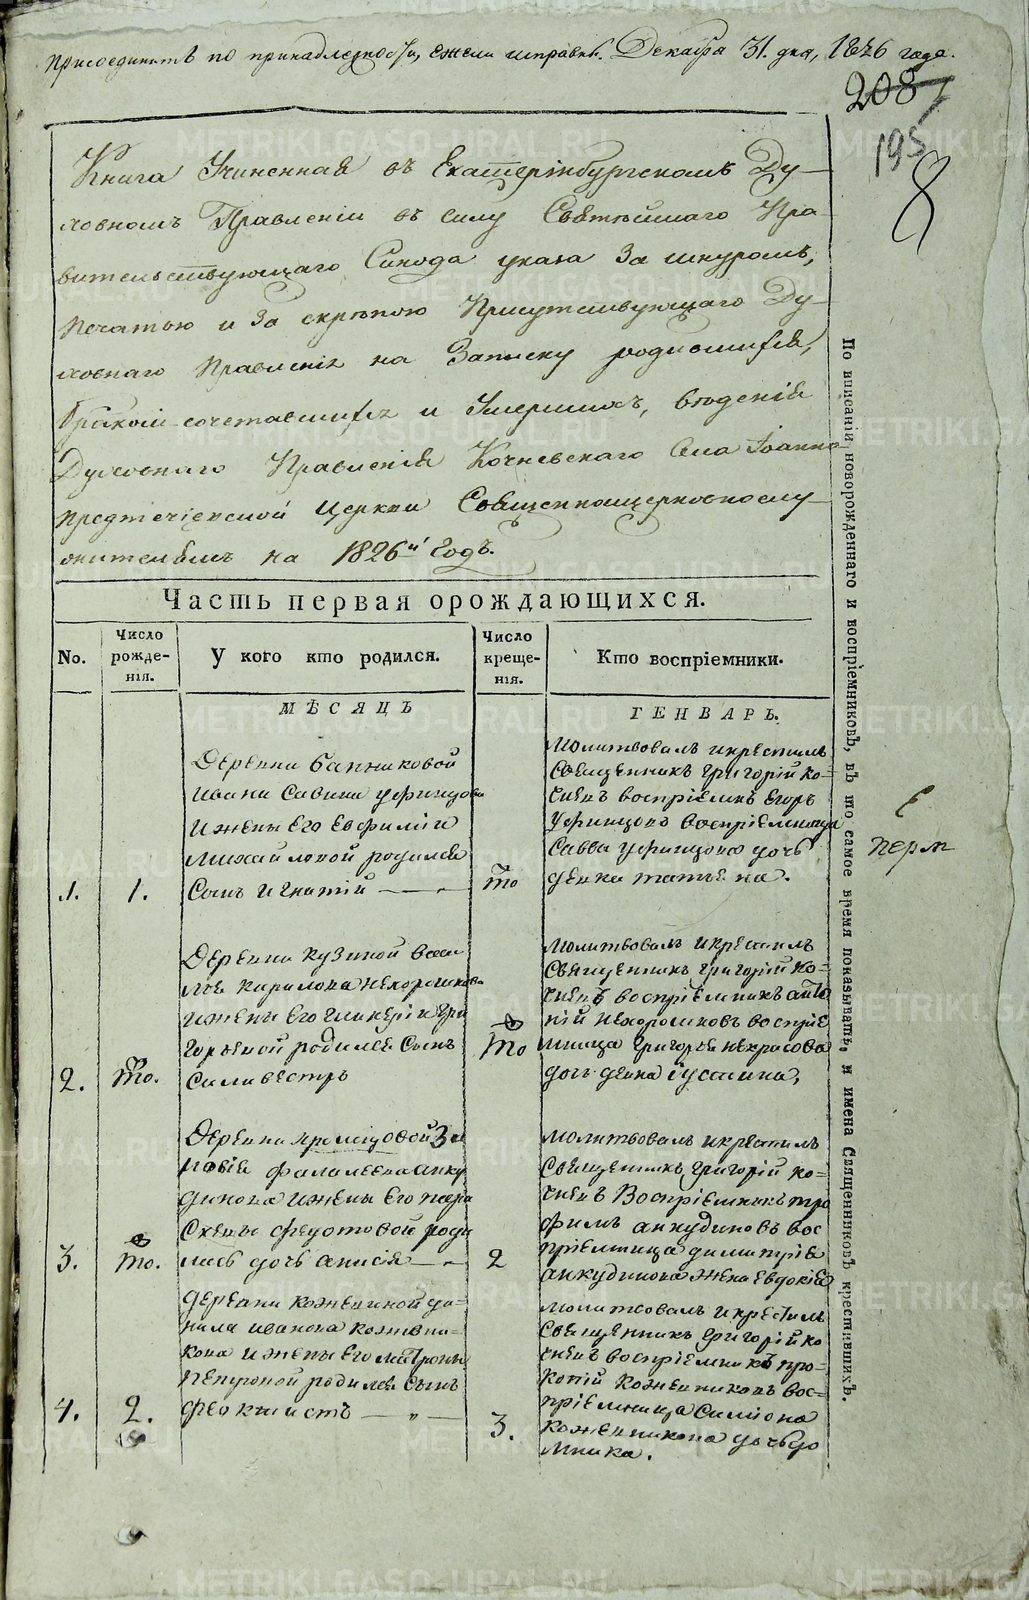 присоединить по принадлежности, ежели исправна. Декабря 31. дня, 1826 года.
208
195
8
Книга Учиненная въ Екатерінбургскомъ Ду-
ховномъ Правленіи въ силу Святѣйшаго Пра-
вительствующаго Синода указа За шнуромъ,
печатью и За скрѣпою Присутствующаго Ду-
ховнаго Правленія на Записку родившихся,
бракомъ сочетавшихся и Умершихъ,
Духовнаго Правленія Кочневскаго Села Іоанно
предтечіенской церкви Священноцерковнослу
жителямъ на 1826й годъ.
Часть первая орождающихся.
No.
Число рожде-нія.
У кого кто родился.
Число креще-нія.
Кто воспріемники.
МѢСЯЦЪ
ГЕНВАРЬ.
1.
1.
Деревни Банниковой
Ивана Савина Уфинцова
и жены его Евфиміи
Михайловой родился
Сынъ Игнатій
То
молитвовалъ и крестилъ
Священникъ Григорій Ко-
чневъ воспріемникъ Егоръ
Уфинцовъ воспріемница
Савва Уфинцова дочь
девка татьяна.
2.
То.
Деревни кузиной васи
лья кирилова нехорошкова
и жены его гликеріи гри
горьевой родился Сынъ
Силивестръ
То
молитвовалъ и крестилъ
Священникъ Григорій Ко-
чневъ воспріемникъ анто
ній нехорошковъ воспріе
мница григорья некрасова
дочь девка іустина,
3.
То.
Деревни Зи
новія фалалеева анку
динова и жены его пара
скевы федотовой роди
лась дочь анисія
2
молитвовалъ и крестилъ
Священникъ Григорій Ко-
чневъ Воспріемникъ тро
фимъ анкудиновъ вос
пріемница димитрія
анкудинова жена евдокія
4.
2.
деревни кожевиной да-
нила иванова кожевни-
кова и жены его матроны
родился Сынъ
феоктистъ
3.
молитвовалъ и крестилъ
Священникъ Григорій Ко
чневъ воспріемникъ про-
копій кожевниковъ вос-
пріемница Симіона
кожевникова дочь до
мника.
По вписаніи новорожденнаго и воспріемниковъ, въ то самое время показывать, и имена Священниковъ крестившихъ.
Е
перм
METRIKI.GASO-URAL.RU